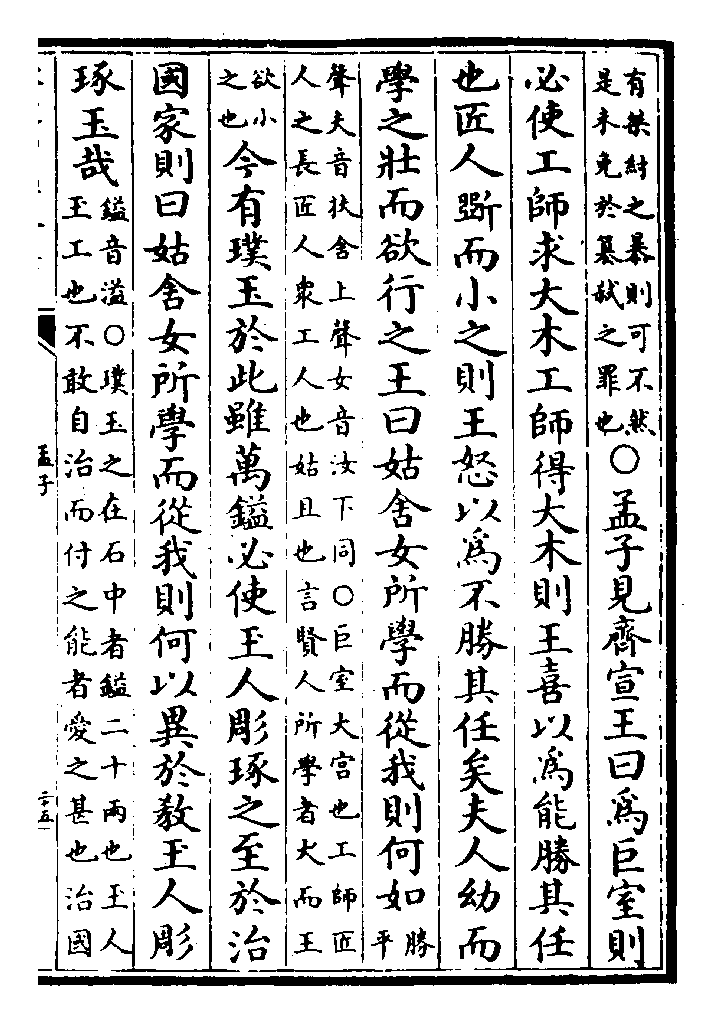 有桀紂之暴則可不然
是未免於篡弑之罪也
○孟子見齊宣王曰爲巨室則
必使工師求大木工師得大木則王喜以爲能勝其任
也匠人斲而小之則王怒以爲不勝其任矣夫人幼而
學之壯而欲行之王曰姑舍女所學而從我則何如
勝
平
聲夫音扶舍上聲女音汝下同○巨室大宮也工師匠
人之長匠人衆工人也姑且也言賢人所學者大而王
欲小
之也
今有璞玉於此雖萬鎰必使玉人彫琢之至於治
國家則曰姑舍女所學而從我則何以異於敎玉人彫
琢玉哉
鎰音溢○璞玉之在石中者鎰二十兩也玉人
玉工也不敢自治而付之能者愛之甚也治國
孟子
二十五